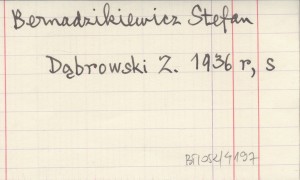 Bernadzikiewicz Stefan
Dąbrowski Z. 1936 r, s